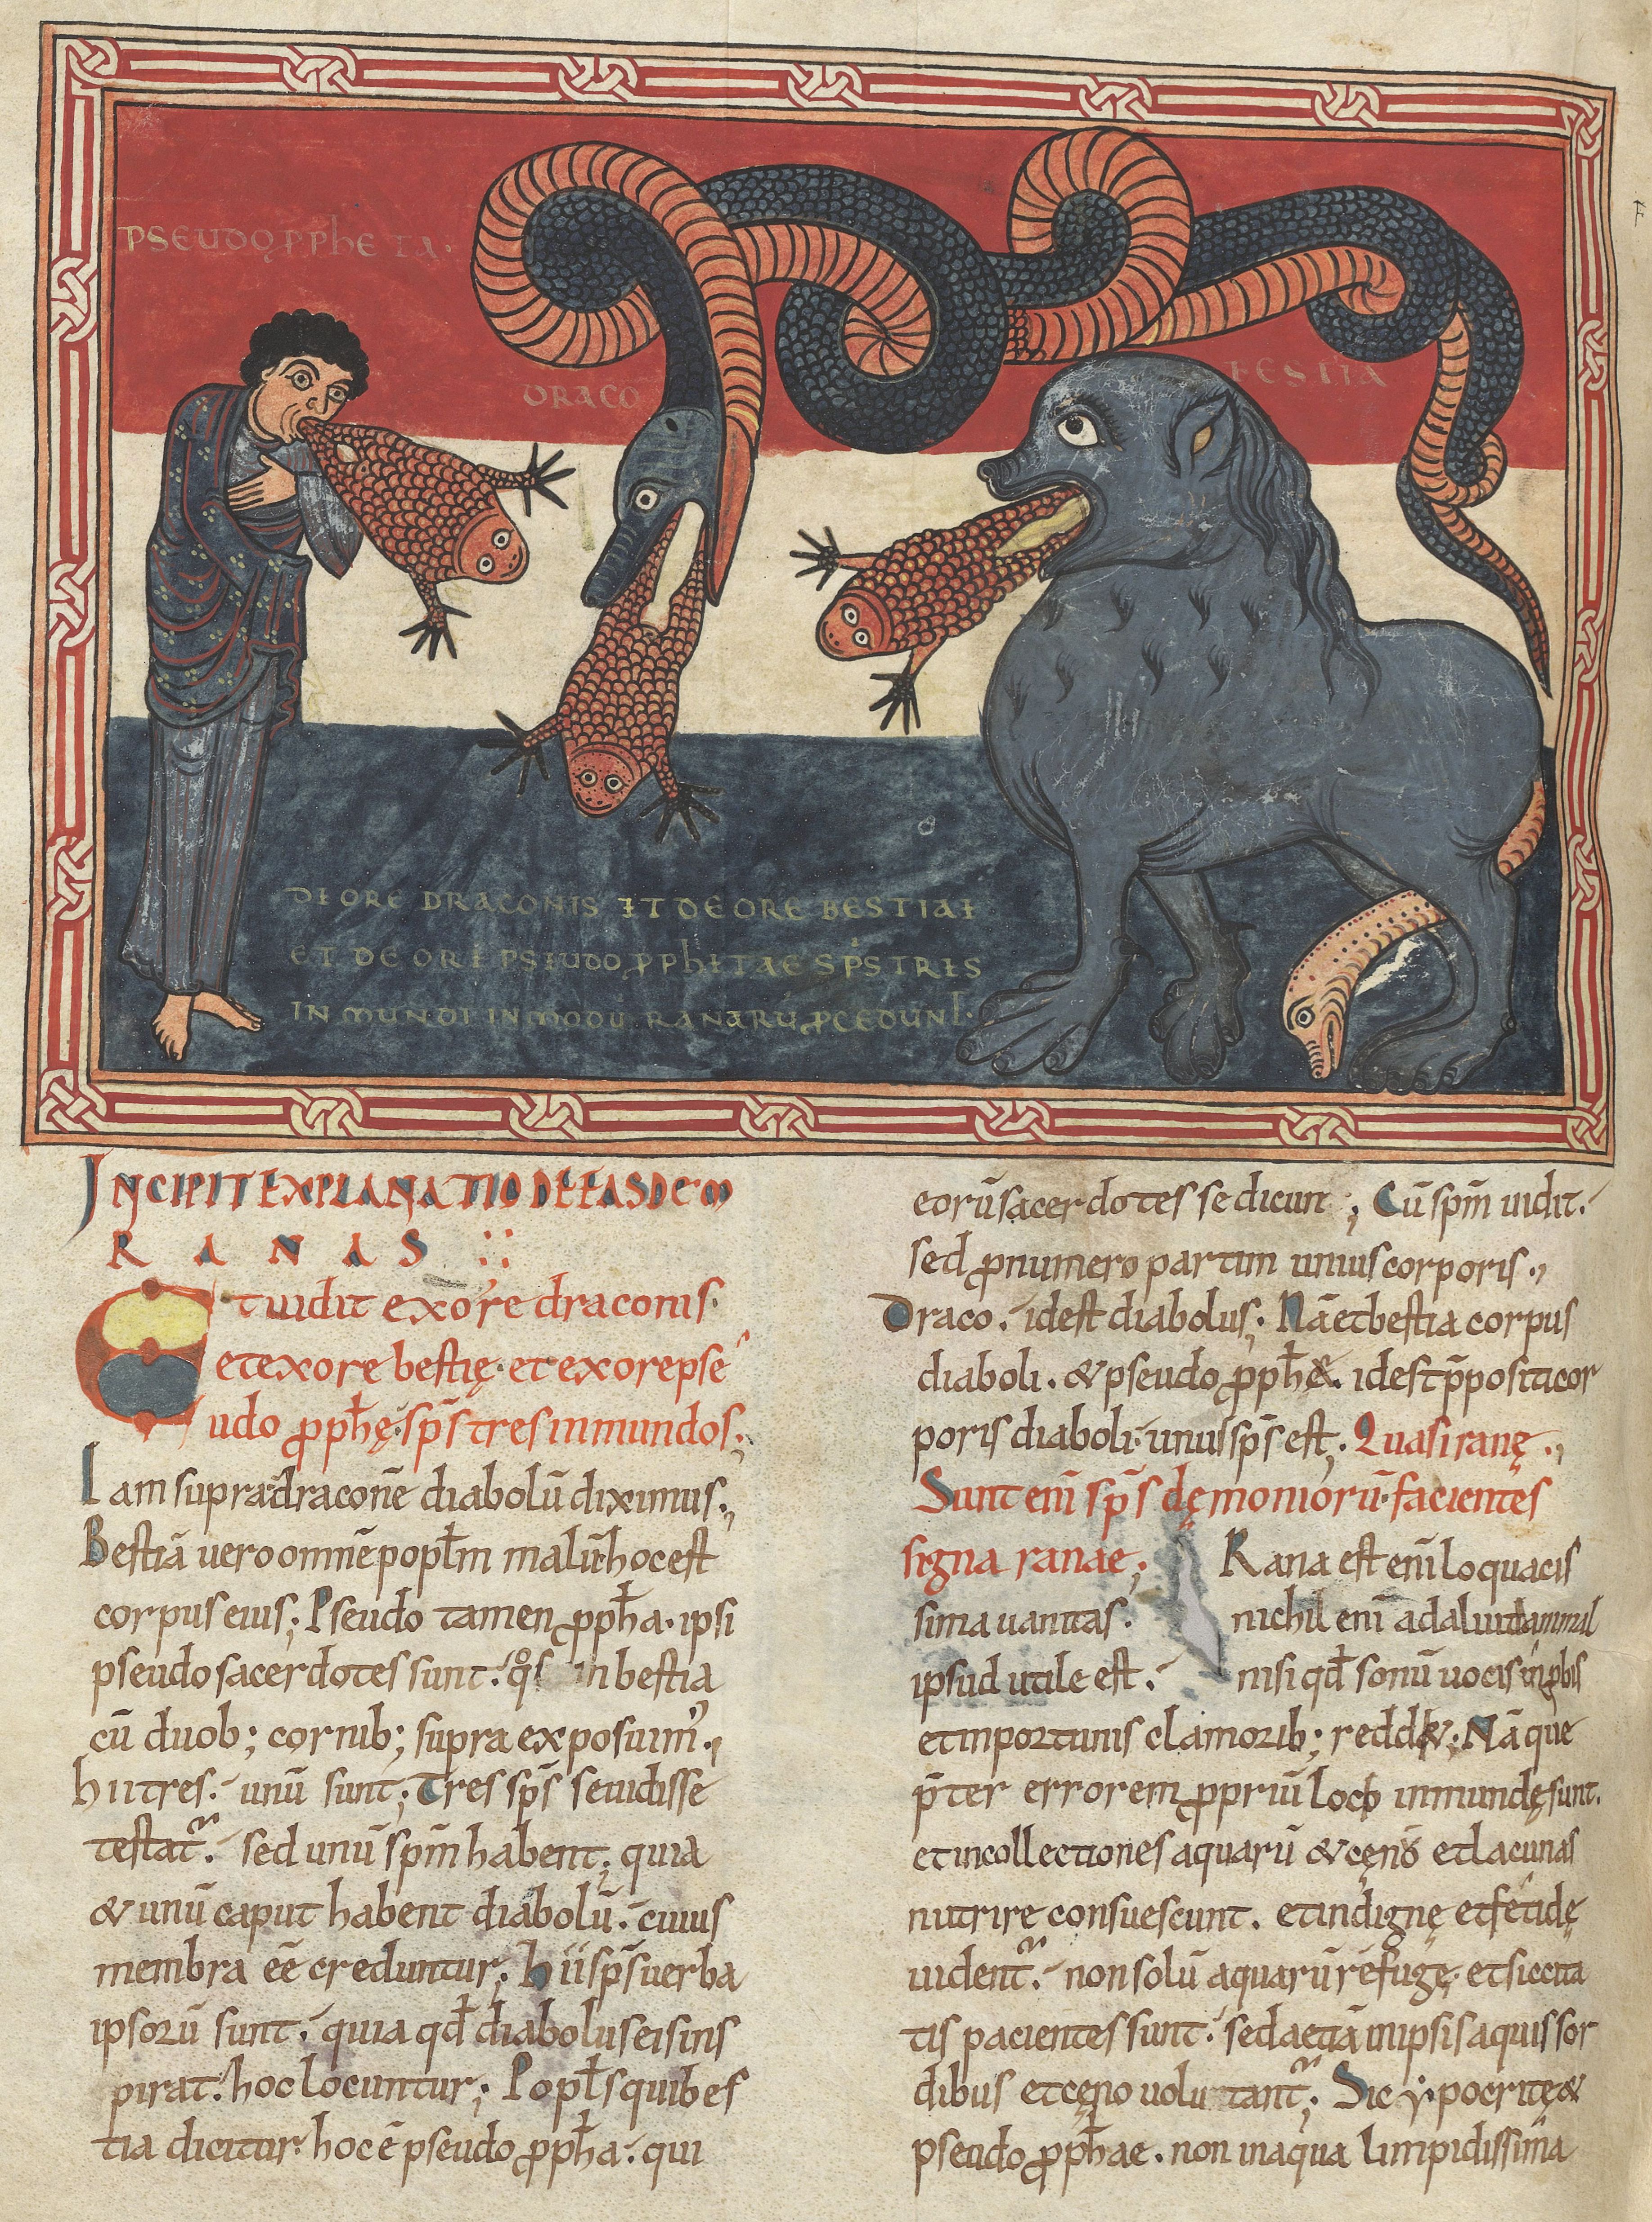 PSEUDO PPhETA·
DRACO
BESTIA
DE ORE DRACONIS ET DE ORE BESTIAE
ET DE ORE PSEUDO PPhETAE SPS TRES
IN MUNDI IN MODŪ RANARŪ PCEDUNT·
INCIPIT EXPLANATIO DE EASDEM
RANAS
Et uidit ex ore draconis·
et ex ore bestię· et ex ore pse
udo pphę· sps̄ tres inmundos;
Iam supra draconē diabolū diximus.,
Bestiā uero omnē poplm malū· hoc est
corpus eius; Pseudo tamen ppha· ipsi
pseudo sacerdotes sunt· qs in bestia
cū duob; cornib; supra exposuim᾽.,
hii tres· unū sunt; Tres sps̄ se uidisse
testat᾽· sed unū spm̄ habent; quia
& unū caput habent diabolū· cuius
membra eē creduntur; hii sps̄ uerba
ipsorū sunt· quia qđ diabolus eis ins
pirat· hoc locuntur; Popls qui bes
tia dicitur· hoc ē pseudo ppha· qui
eorū sacerdotes se dicunt; Cū spm̄ uidit·
sed p numero partim unius corporis.,
Draco· id est diabolus; Nā et bestia corpus
diaboli· & pseudo pph&· id est p̄positi cor
poris diaboli· unus sps̄ est; Quasi ranę.,
Sunt enī sps̄ dęmoniorū· facientes
signa ranae; Rana est enī loquacis
sima uanitas· nichil enī ad aliud animal
ipsud utile est· nisi qđ sonū uocis inpbis
et inportunis clamorib; redd&; Nāque
p̄ter errorem ppriū loco inmundę sunt.
et in collectiones aquarū & cęno et lacunas
nutrire consuescunt· et indignę et fętidę
uident᾽· non solū aquarū refugę· et siccita
tis pacientes sunt· sed aetiā in ipsis aquis sor
dibus et cęno uolutant᾽; Sic ypocritę &
pseudo pphae· non in aqua limpidissima